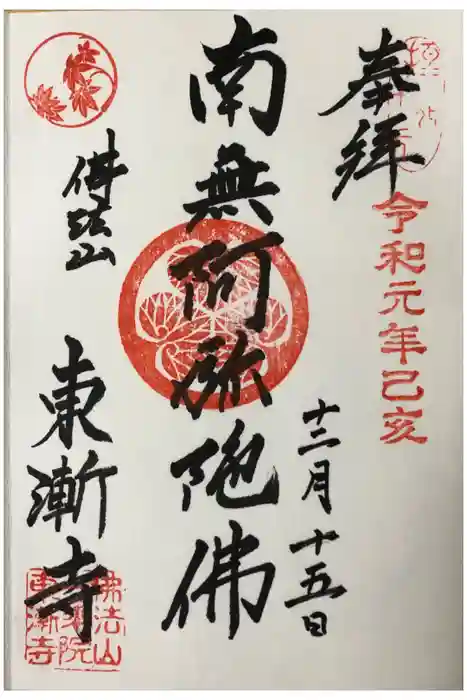 奉拝
令和元年己亥
十二月十五日
南無阿弥陀佛
佛法山
東漸寺
佛法山
一乗院
東漸寺